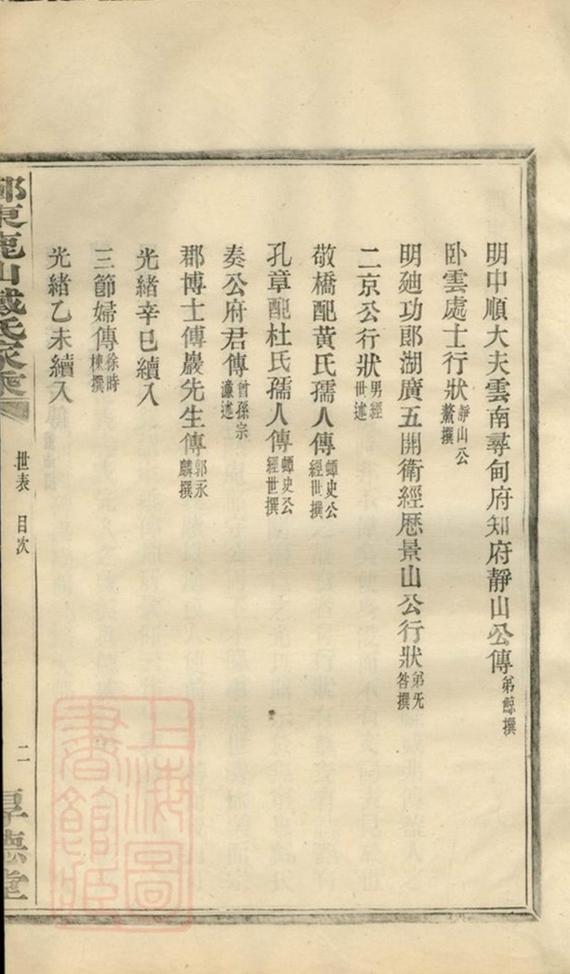 明中順大夫雲南尋甸府知府靜山公傳弟鯨撰
卧雲處士行狀靜山公鰲撰
明廸功郎湖廣五開衛經歷景山公行狀弟旡咎撰
二京公行狀男經世述
敬橋配黃氏孺人傳蟫史公經世撰
孔章配杜氏孺人傳蟫史公經世撰
奏公府君傳曾孫宗濂述
郡博士傳巖先生傳郭永麟撰
光緒辛巳續入
三節婦傳徐時棟撰
光緒乙未續入
鄮東鹿山戴氏家乘
世表 目次
二
厚德堂
上海圖書館藏